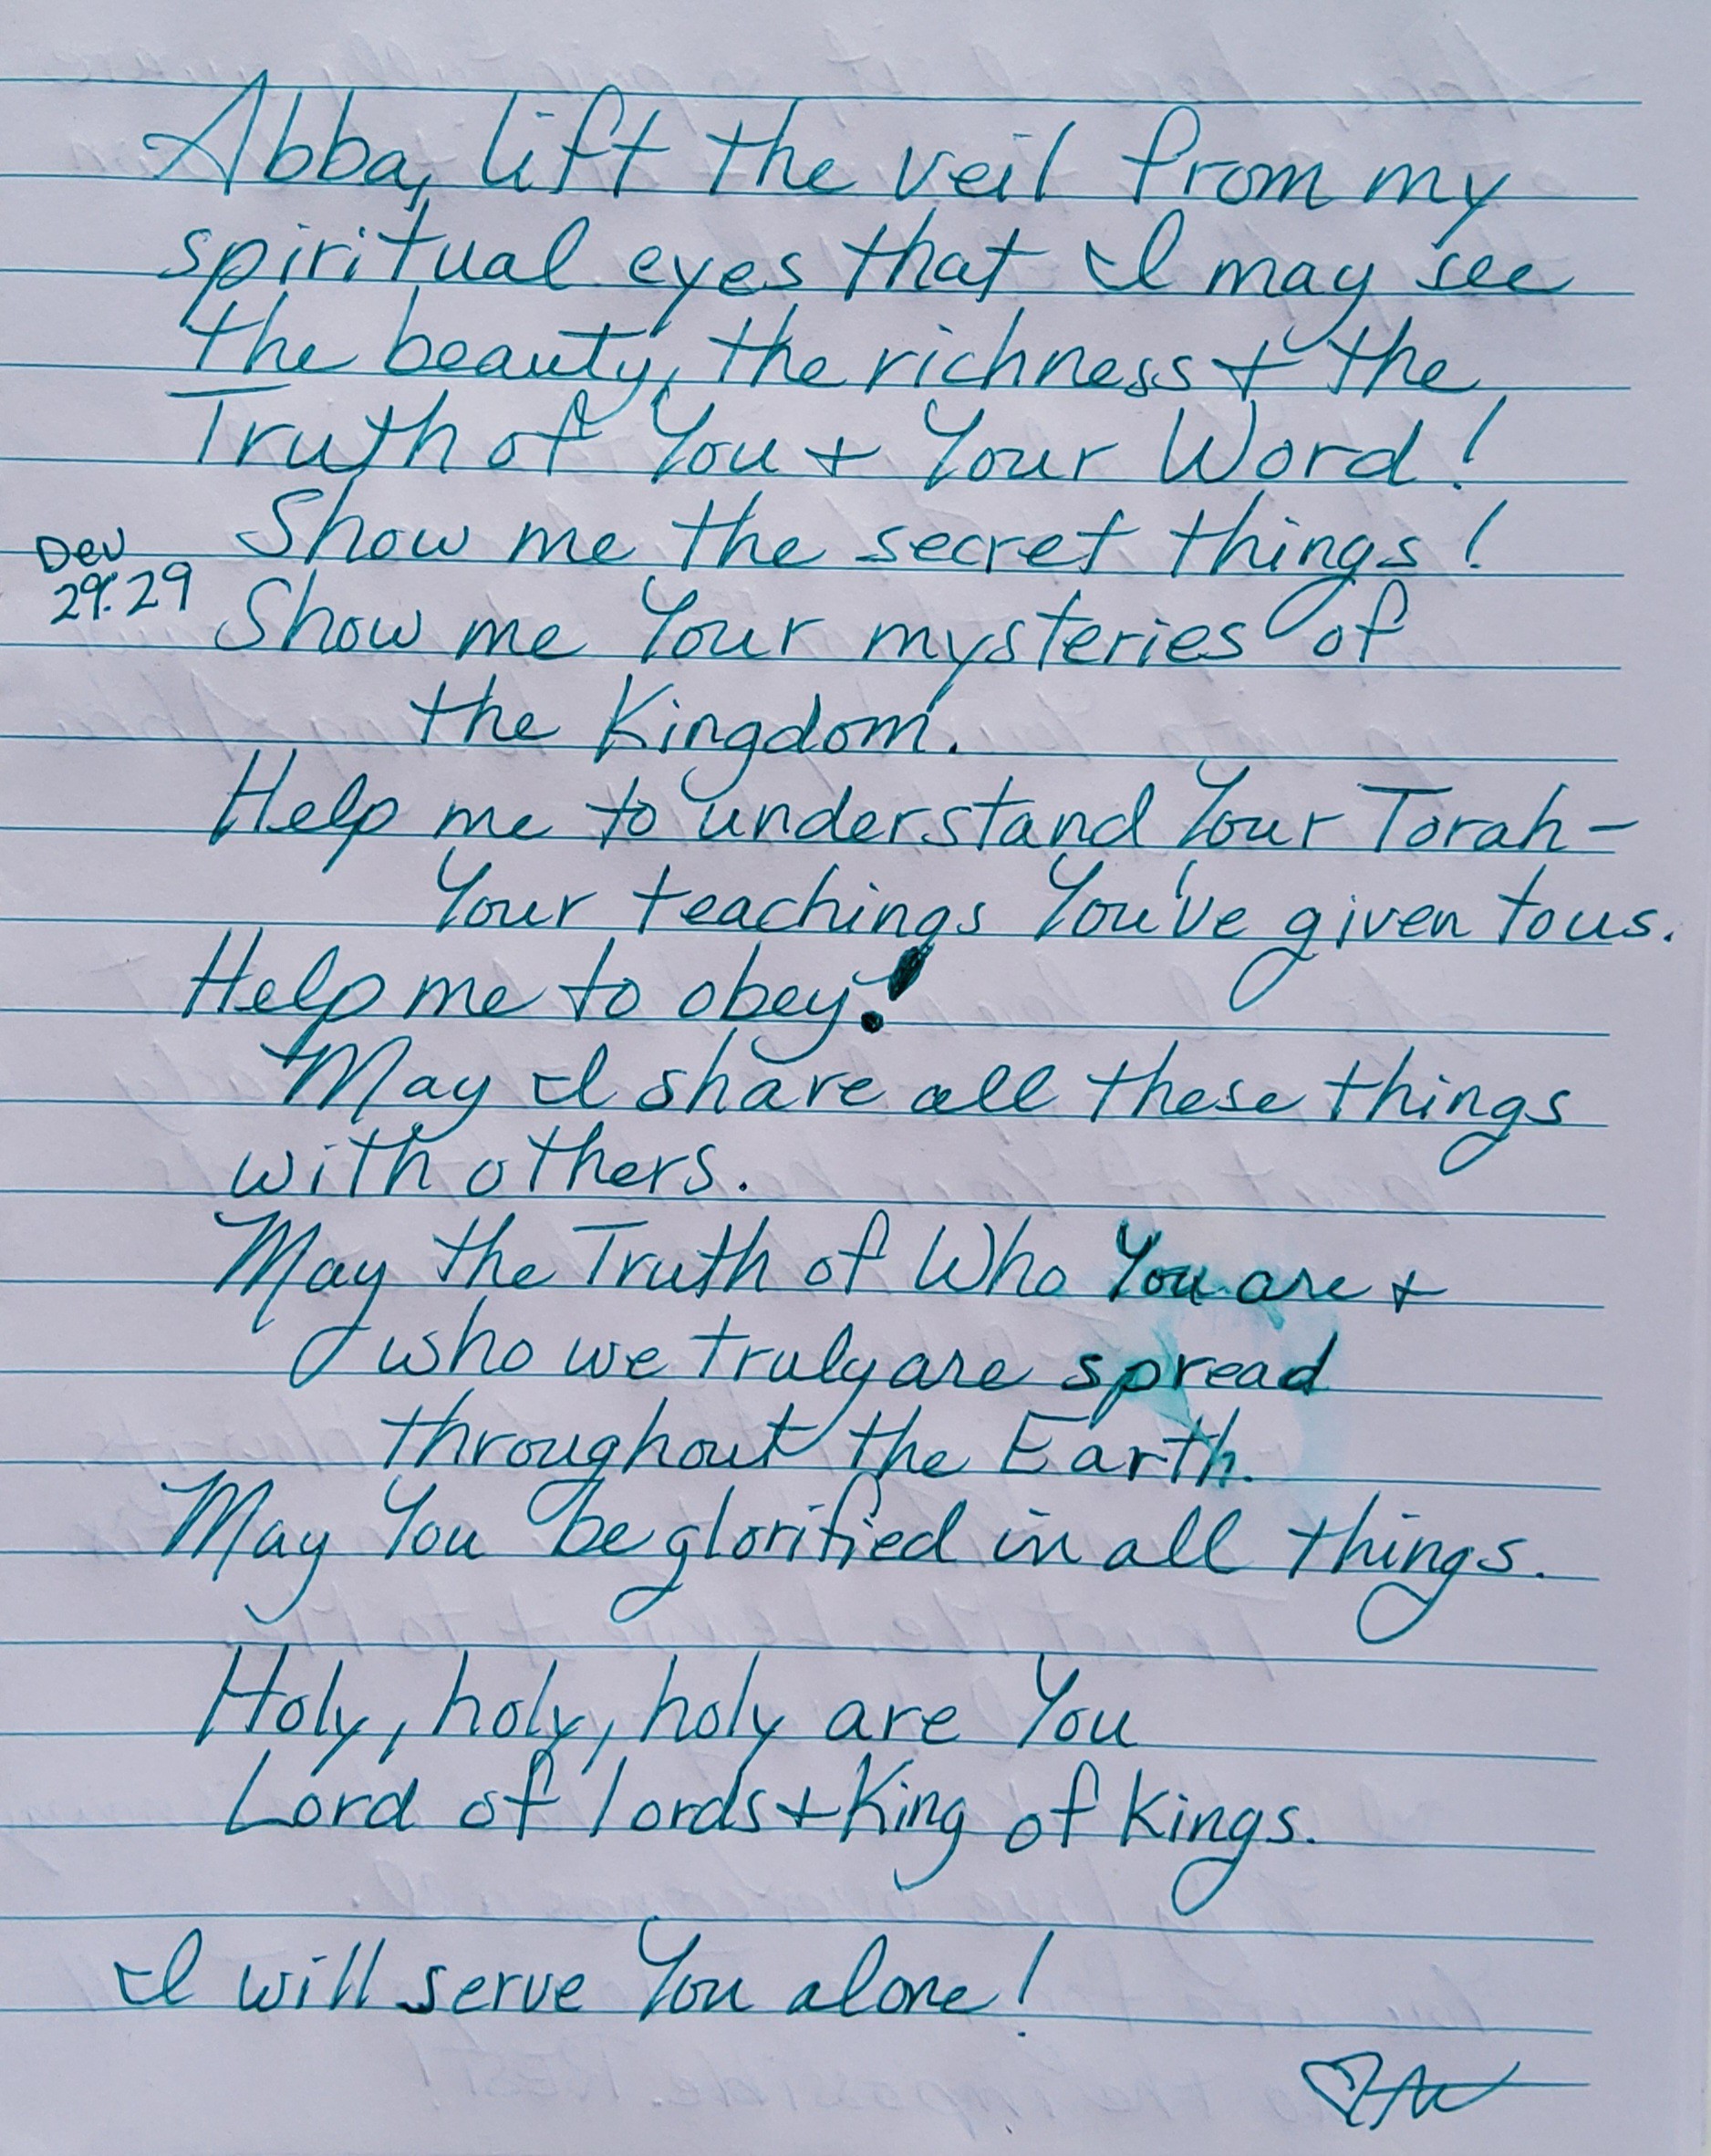 Abba, lift the veil from my
spiritual eyes that I may see
the beauty, the richness + the
Truth of You + Your Word!
Show me the secret things!
Dev
29:29
Show me Your mysteries of
the Kingdom.
Help me to understand Your Torah -
Your teachings You've given to us.
Help me to obey!
May I share all these things
with others.
May the Truth of Who You are +
who we truly are spread
throughout the Earth.
May You be glorified in all things.
Holy, holy, holy are You
Lord of lords + King of Kings.
I will serve You alone!